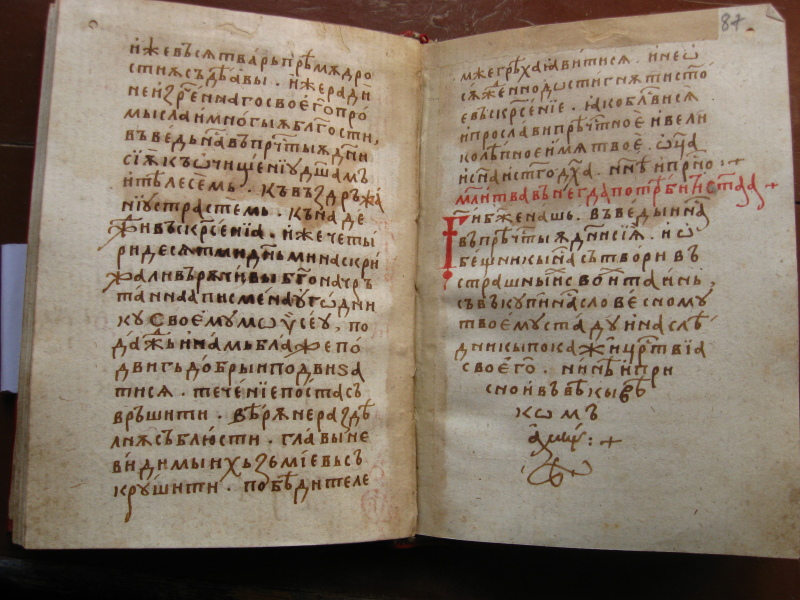 и҆же въсѧ тварь прѣмѫдро
стиѫ съдѣавы . и҆же ради
неизреⷱ҇ннаго своего про
мысла и многыѧ бл҃гости,
въведъ на въ прⷱ҇тыѧ дн҃и
сїѫ къ ѡчищенїю дш҃амъ
и тѣлесемь . къ въздръжа
нїю страстемь . къ наде
жи въскрсенїа . и҆же четы
ридесѧтми днми на скри
жали въ рѫчи вы бг҃оначръ
таннаа писмена ѹгодни
кѹ своемѹ мѡѷсеѹ , по
даждь и намь бл҃же по
двигъ добрыи подвиза
тисѧ . теченїе поста съ
връшити . вѣрѫ нераздѣ
лнѫ съблюсти . главы не
видимыихъ ѕмїевь съ
крѹшити . побѣдителе
87
мже грѣха ꙗвитисѧ . и неѡ
сѫжⷣенно достигнѫти ст҃о
е въскрⷭ҇енїе . ꙗко блⷭ҇висѧ
и прослави прⷱ҇тное и вели
колѣпное имѧ твое . ѡц҃а
и сн҃а и ст҃го дх҃а . нн҃ѣ и прⷭ҇но :+
мл҃итва вънегда потрѣбити ст҃аа +
Ги҃ бж҃е нашь . въведыи на
въ прⷱ҇тыѧ дн҃и сїѧ . и ѡ
бещникы на сътвори въ
страшныихъ своихъ таинь ,
съвъкѹпи на словесномѹ
твоемѹ стадѹ и наслѣ
дникы покажи црⷭ҇твїа
своего . нн҃ѣ и при
сно и въ вѣкы вѣ
комъ
аминь :+